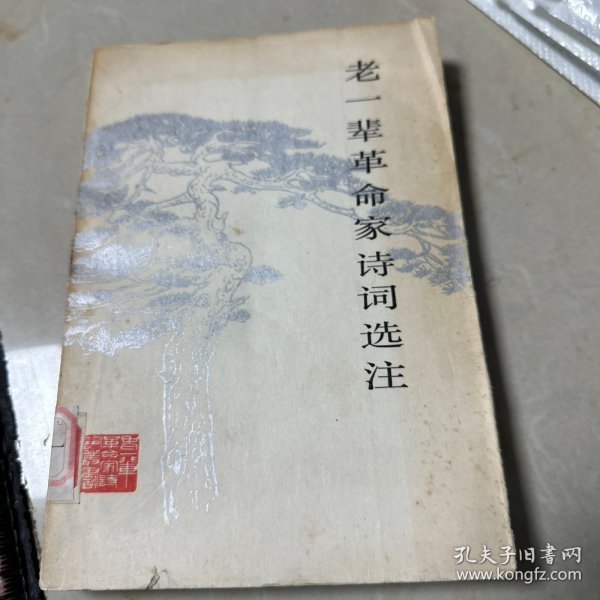 老一辈革命家诗词选注
孔夫子旧书网
www.kongfz.com